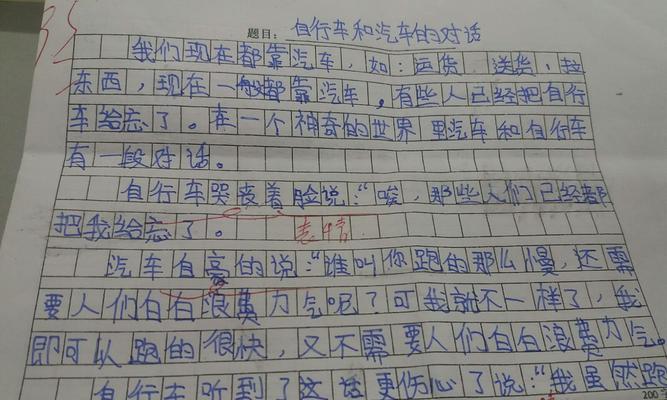 35
题目: 自行车和汽车的对话
我们现在都靠汽车,如:运货 送货,拉
东西,现在一般都靠汽车,有些人已经把自行
车给忘了。在一个神奇的世界里汽车和自行车
有一段对话。
自行车哭丧着脸说:“唉,那些人们已经都
把我给忘了。 表情
汽车自豪的说:“谁叫你跑的那么慢,还需
要人们白白浪费力气呢?可我就不一样了,我
即可以跑的很快,又不需要人们白白浪费力气。
自行车听到了这话更伤心了说:“我虽然跑
200